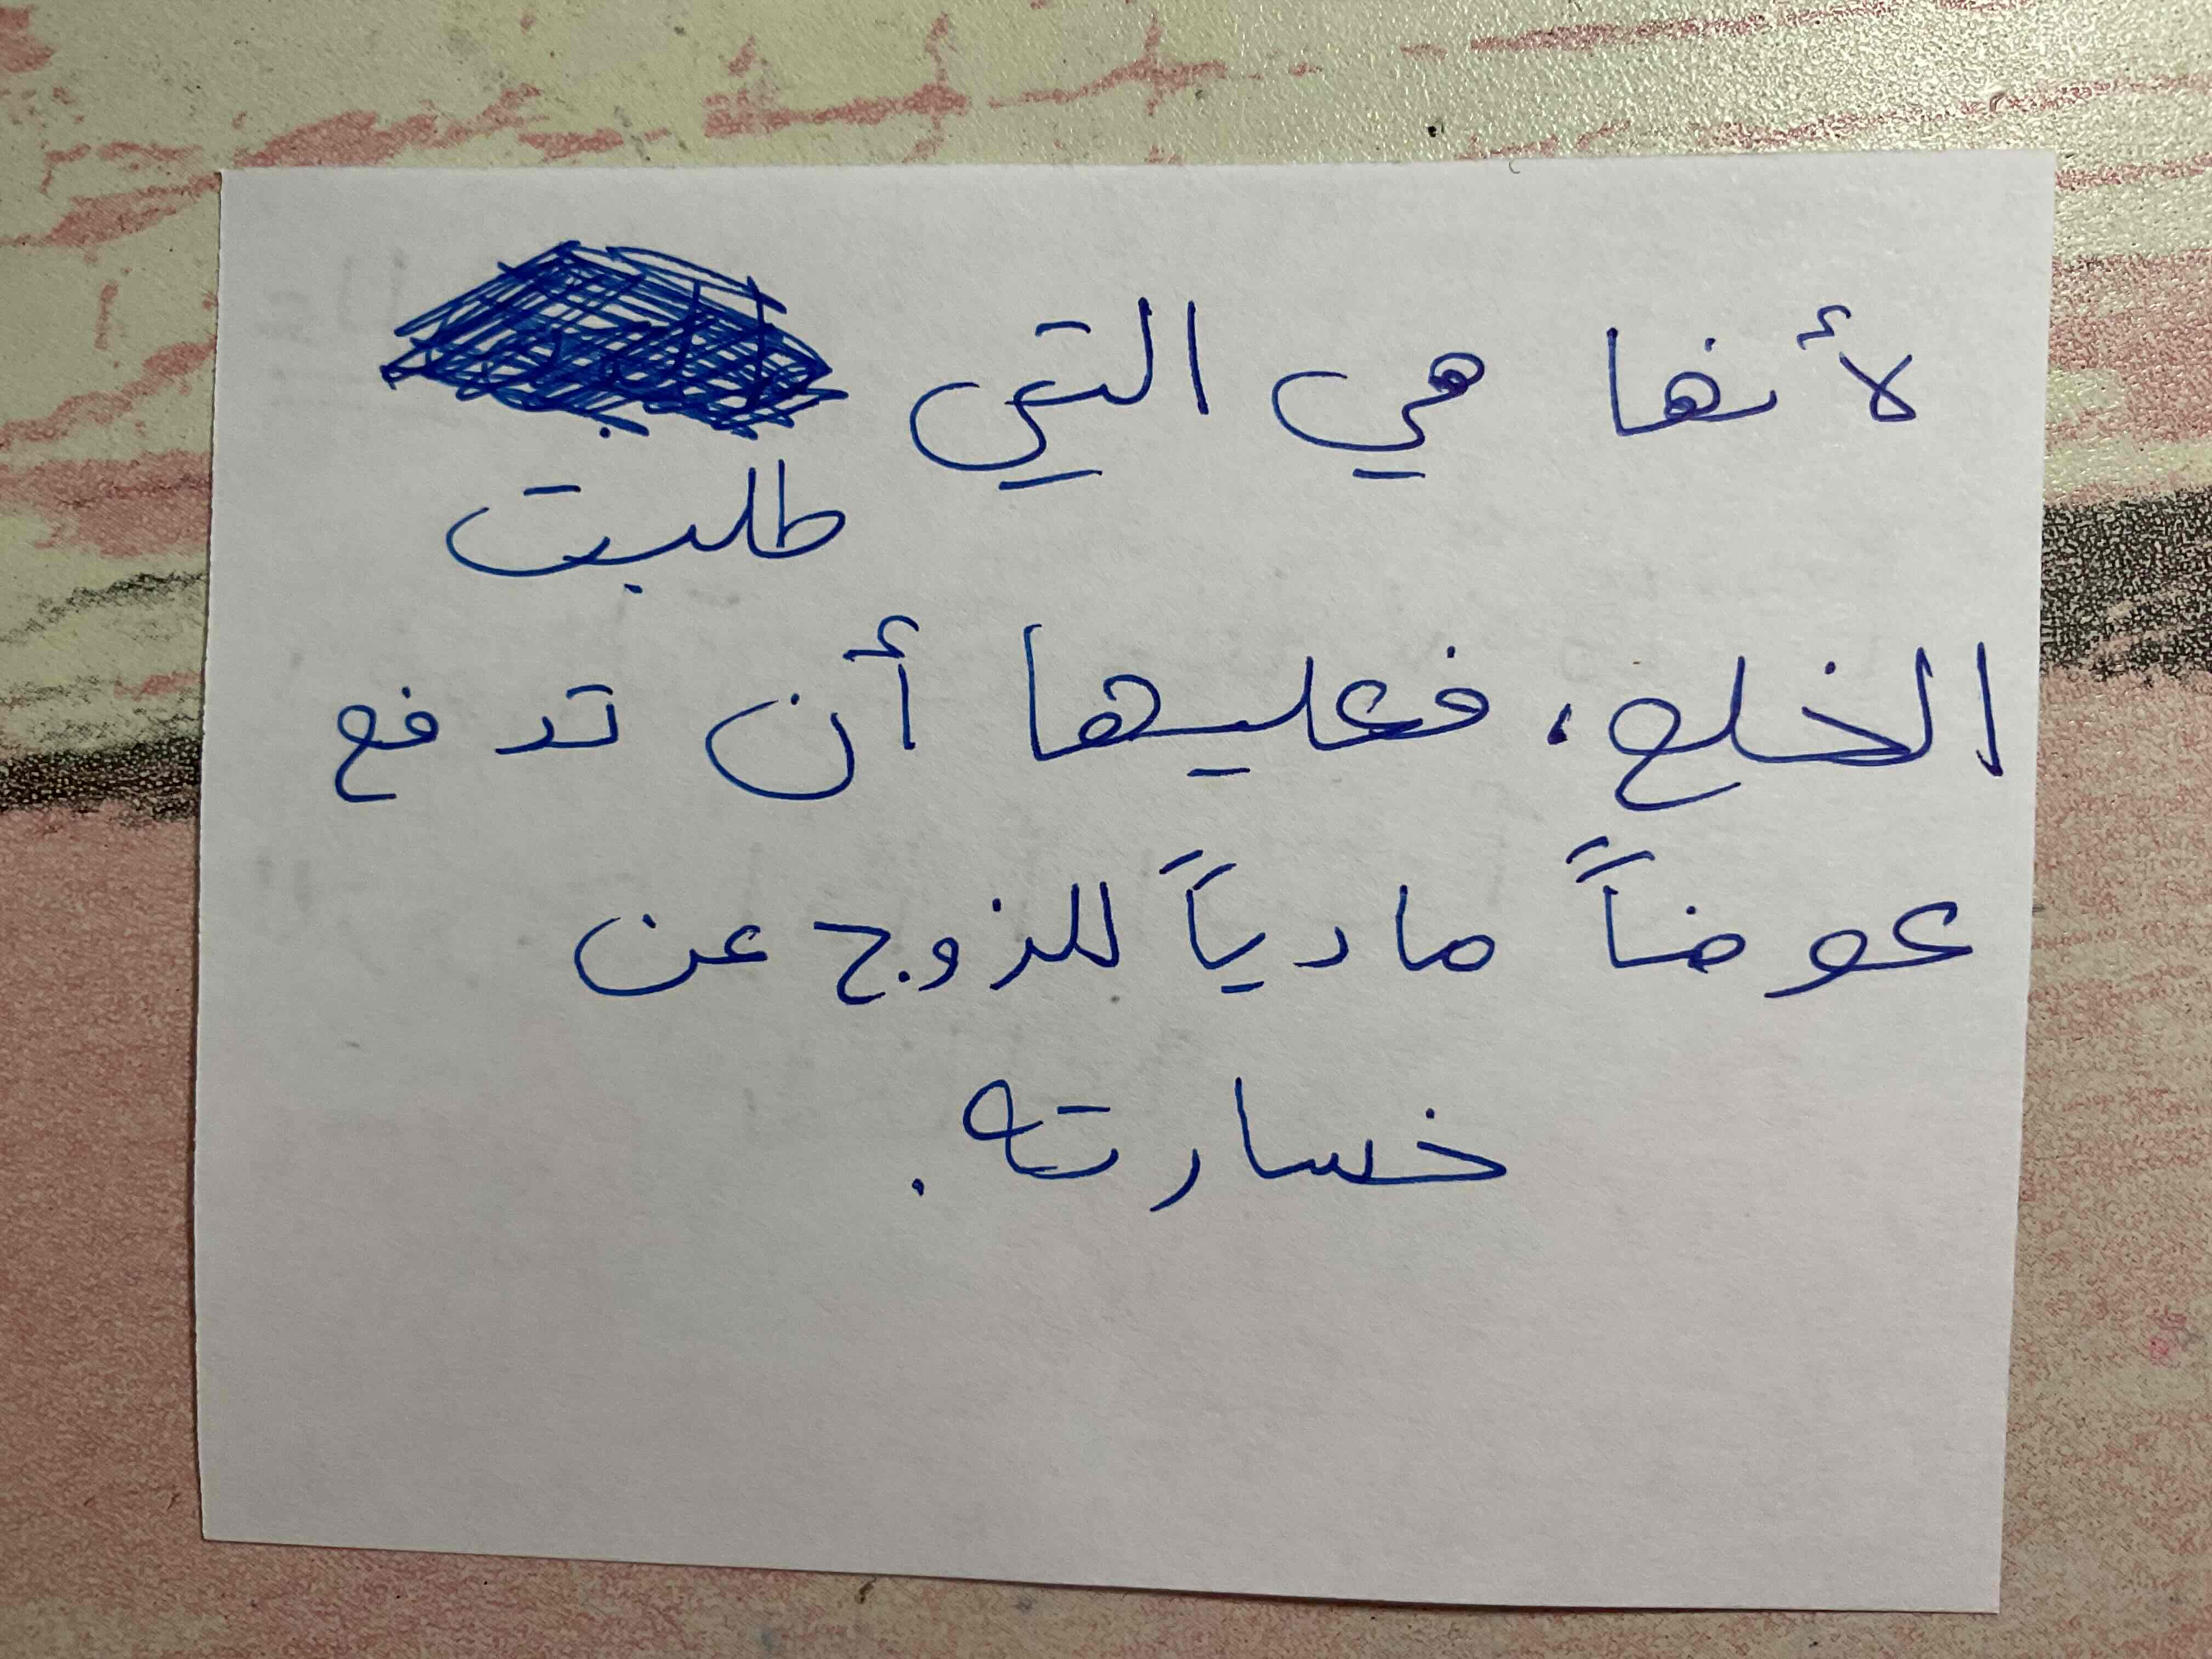 لأنها هي التي
طلبت
الخلع، فعليها أن تدفع
عوضاً مادياً للزوج عن
خسارته.